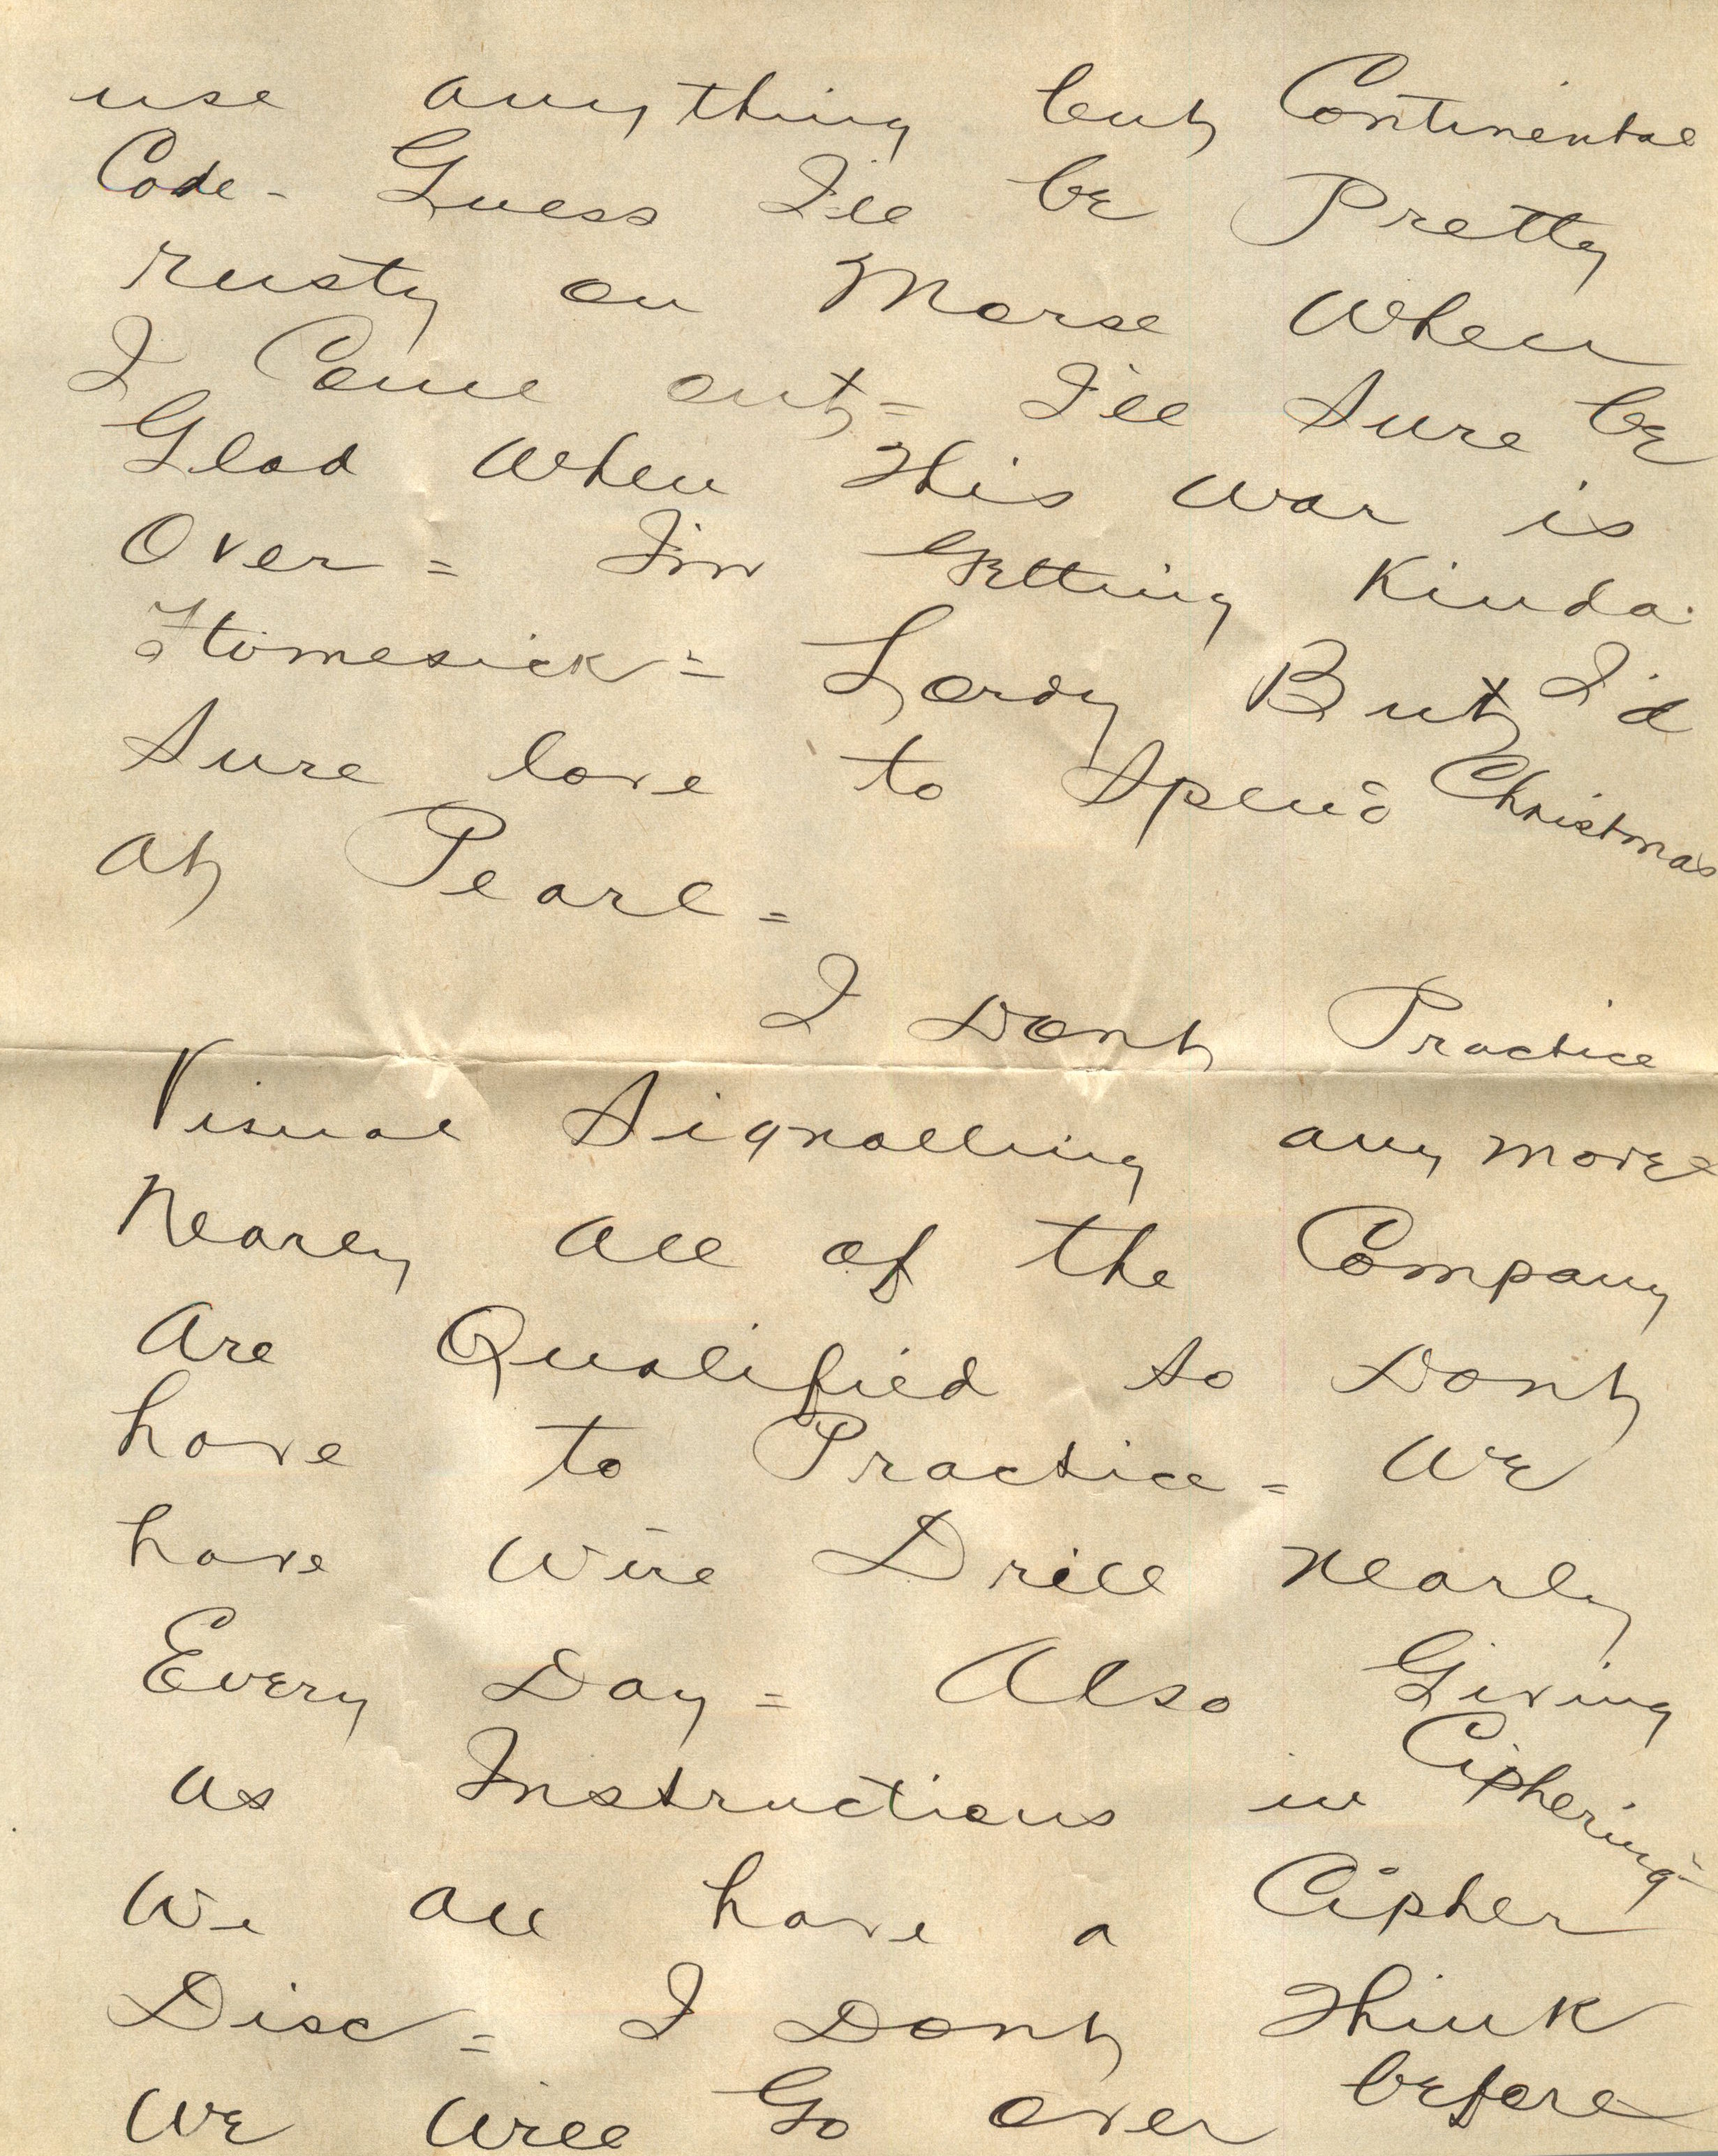 use anything but Continental
Code - Guess I'll be Pretty
rusty on Morse when
I Come out = I'll Sure be
Glad when This war is
Over = I'm Getting Kinda
Homesick = Lordy But I'd
Sure love to Spend Christmas
at Pearl =
I Dont Practice
Visual Signalling any more
Nearly all of the Company
are Qualified so Dont
have to Practice = We
have Wire Drill nearly
Every Day = Also Giving
us Instructions in Ciphering
We all have a Cipher
Disc = I Dont Think
We Will Go over before